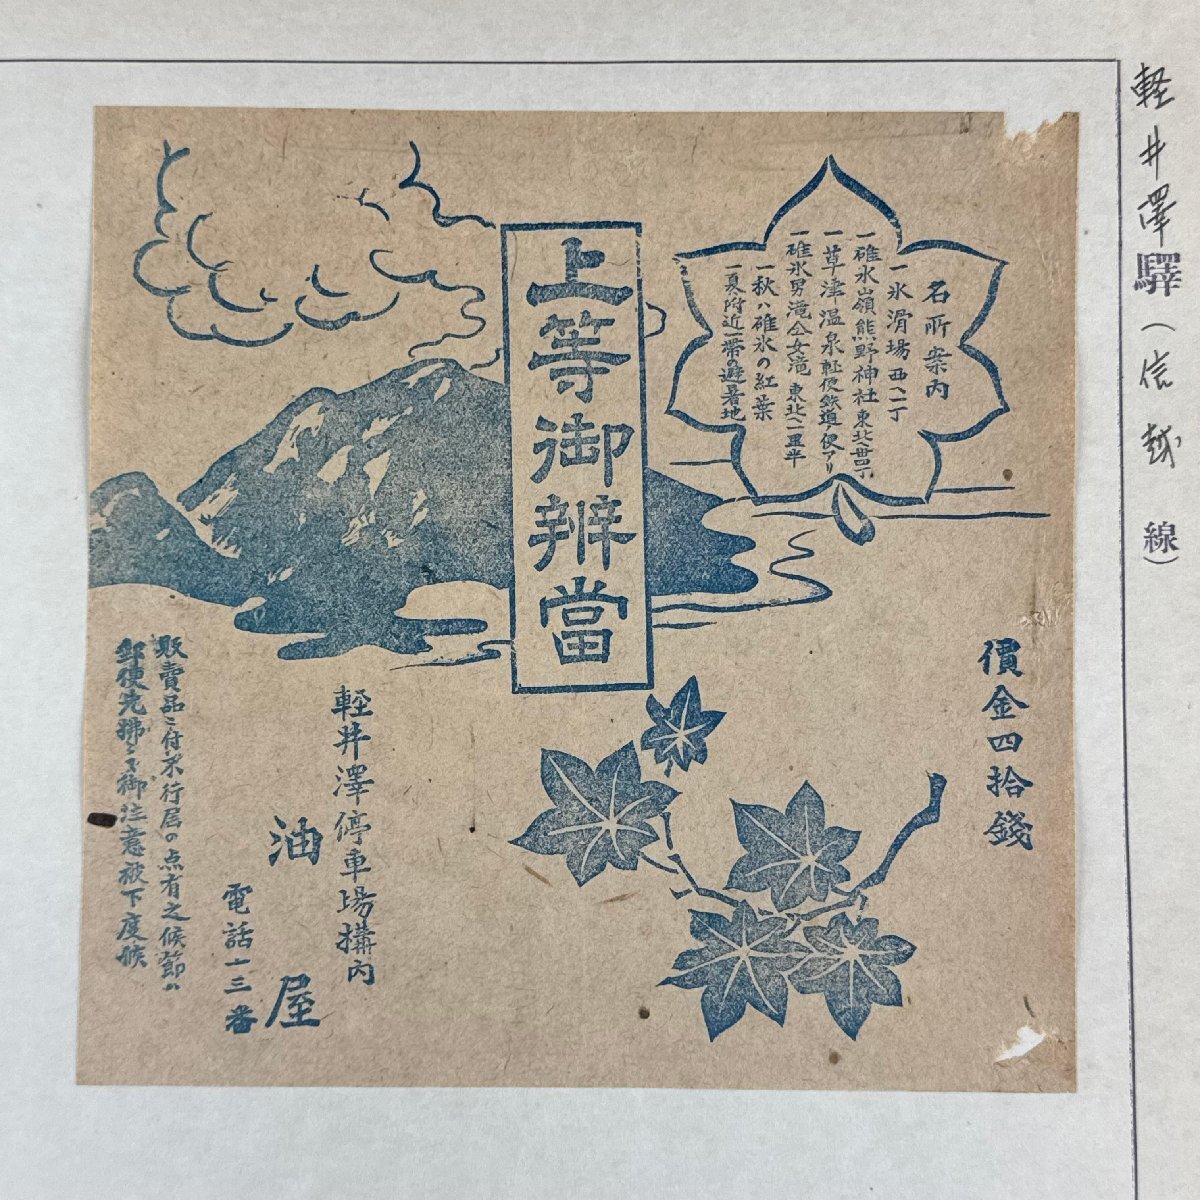 軽井澤驛（信越線）
名所案内
一氷滑場 西へ一丁
一碓氷嶺熊野神社 東北へ卅丁
一草津温泉 軽便鉄道ノ便アリ
一碓氷男滝仝女滝 東北へ一里半
一秋ハ碓氷の紅葉
一夏附近一帯の避暑地
上等御辨當
價金四拾錢
軽井澤停車場構内
油屋
電話十三番
販賣品ニ付不行届の点有之候節ハ
郵便先拂ニテ御注意被下度候